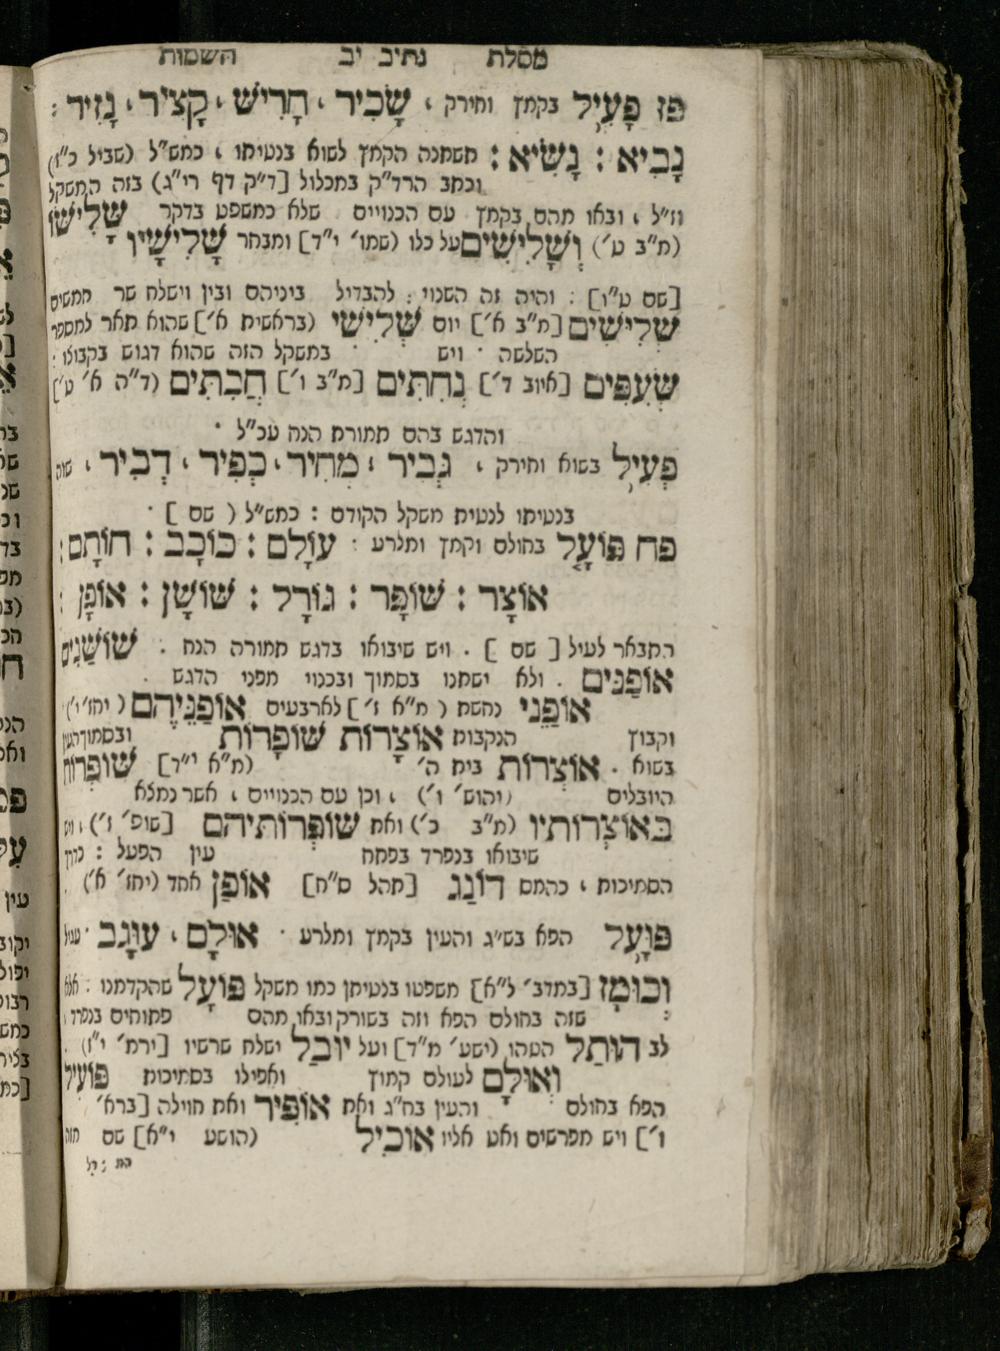 מסלת נתיב יב השמות
פז פָּעִיל בקמץ וחירק ، שָׂכִיר ، חָרִישׁ ، קָצִיר ، נָזִיר :
נָבִיא : נָשִׂיא : תשתנה הקמץ לשוא בנטיתו ، כמש״ל (שביל כ״ז)
וכתב הרד״ק במכלול [ד״ק דף רי״ג) בזה המשקל
וז״ל ، ובאו מהם בקמץ עם הכנויים שלא כמשפט בדקר שָׁלִישׁוֹ
(מ״ב ט׳) וְשָׁלִישִׁים על כלו (שמו׳ י״ד] ומבחר שָׁלִישָׁיו
[שם ט״ו] : והיה זה השנוי : להבדיל ביניהם ובין וישלח שר חמשים
שְׁלִישִׁים [מ״ב א׳] יום שְׁלִישִׁי (בראשית א׳] שהוא תאר למספר
השלשה ٠ ויש במשקל הזה שהוא דגוש בקבוצו :
שְׂעִפִּים [איוב ד׳] נְחִתִּים [מ״ב ו׳] חֲבִתִּים (ד״ה א׳ ט׳]
והדגש בהם תמורת הנח עכ״ל ٠
פְּעִיל בשוא וחירק ، גְּבִיר ، מְחִיר ، כְּפִיר ، דְּבִיר ، שוה
בנטיתו לנטית משקל הקודם : כמש״ל ( שם ] ٠
פח פּוֹעָל בחולם וקמץ ומלרע ٠ עוֹלָם : כּוֹכָב : חוֹתָם :
אוֹצָר : שׁוֹפָר : גּוֹרָל : שׁוֹשָׁן : אוֹפָן :
התבאר לעיל [ שם ] . ויש שיבואו בדגש תמורה הנח : שׁוֹשַׁנִּים
אוֹפַנִּים . ולא ישתנו בסמוך ובכנוי מפני הדגש .
אוֹפַנֵּי נחשת ( מ״א ז׳ ] לארבעים אוֹפַנֵּיהֶם ( יחז׳ י׳)
וקבוץ הנקבות אוֹצָרוֹת שׁוֹפָרוֹת ובסמוך העין
בשוא . אוֹצְרוֹת בית ה׳ (מ״א י״ד] שׁוֹפְרוֹת
היובלים (יהוש׳ ו׳) ، וכן עם הכנויים ، אשר נמצא
בְּאוֹצְרוֹתָיו (מ״ב כ׳) ואת שׁוֹפְרוֹתֵיהֶם [שופ׳ ז׳) ، ויש
שיבואו בנפרד בפתח עין הפעל : כדין
הסמיכות ، כהמם דּוֹנַג [תהל ס״ח] אוֹפַן אחד (יחז׳ א׳) .
פּוּעָל הפא בש״ג והעין בקמץ ומלרע ٠ אוּלָם ، עוּגָב ٠ עגיל
וְכוּמָז [במדב׳ ל״א] משפטו בנטיתן כמו משקל פּוֹעָל שהקדמנו : אלא
שזה בחולם הפא וזה בשורק ובאו מהם פתוחים בנפרד ،
לב הוּתַל הטהו (ישע׳ מ״ד] ועל יוּבַל ישלח שרשיו [ירמ׳ י״ז) .
וְאוּלָם לעולם קמוץ ואפילו בסמיכות פּוֹעִיל
הפא בחולם והעין בח״ג ואת אוֹפִיר ואת חוילה [ברא׳
ו׳] ויש מפרשים ואט אליו אוֹכִיל (הושע י״א] שם מזה